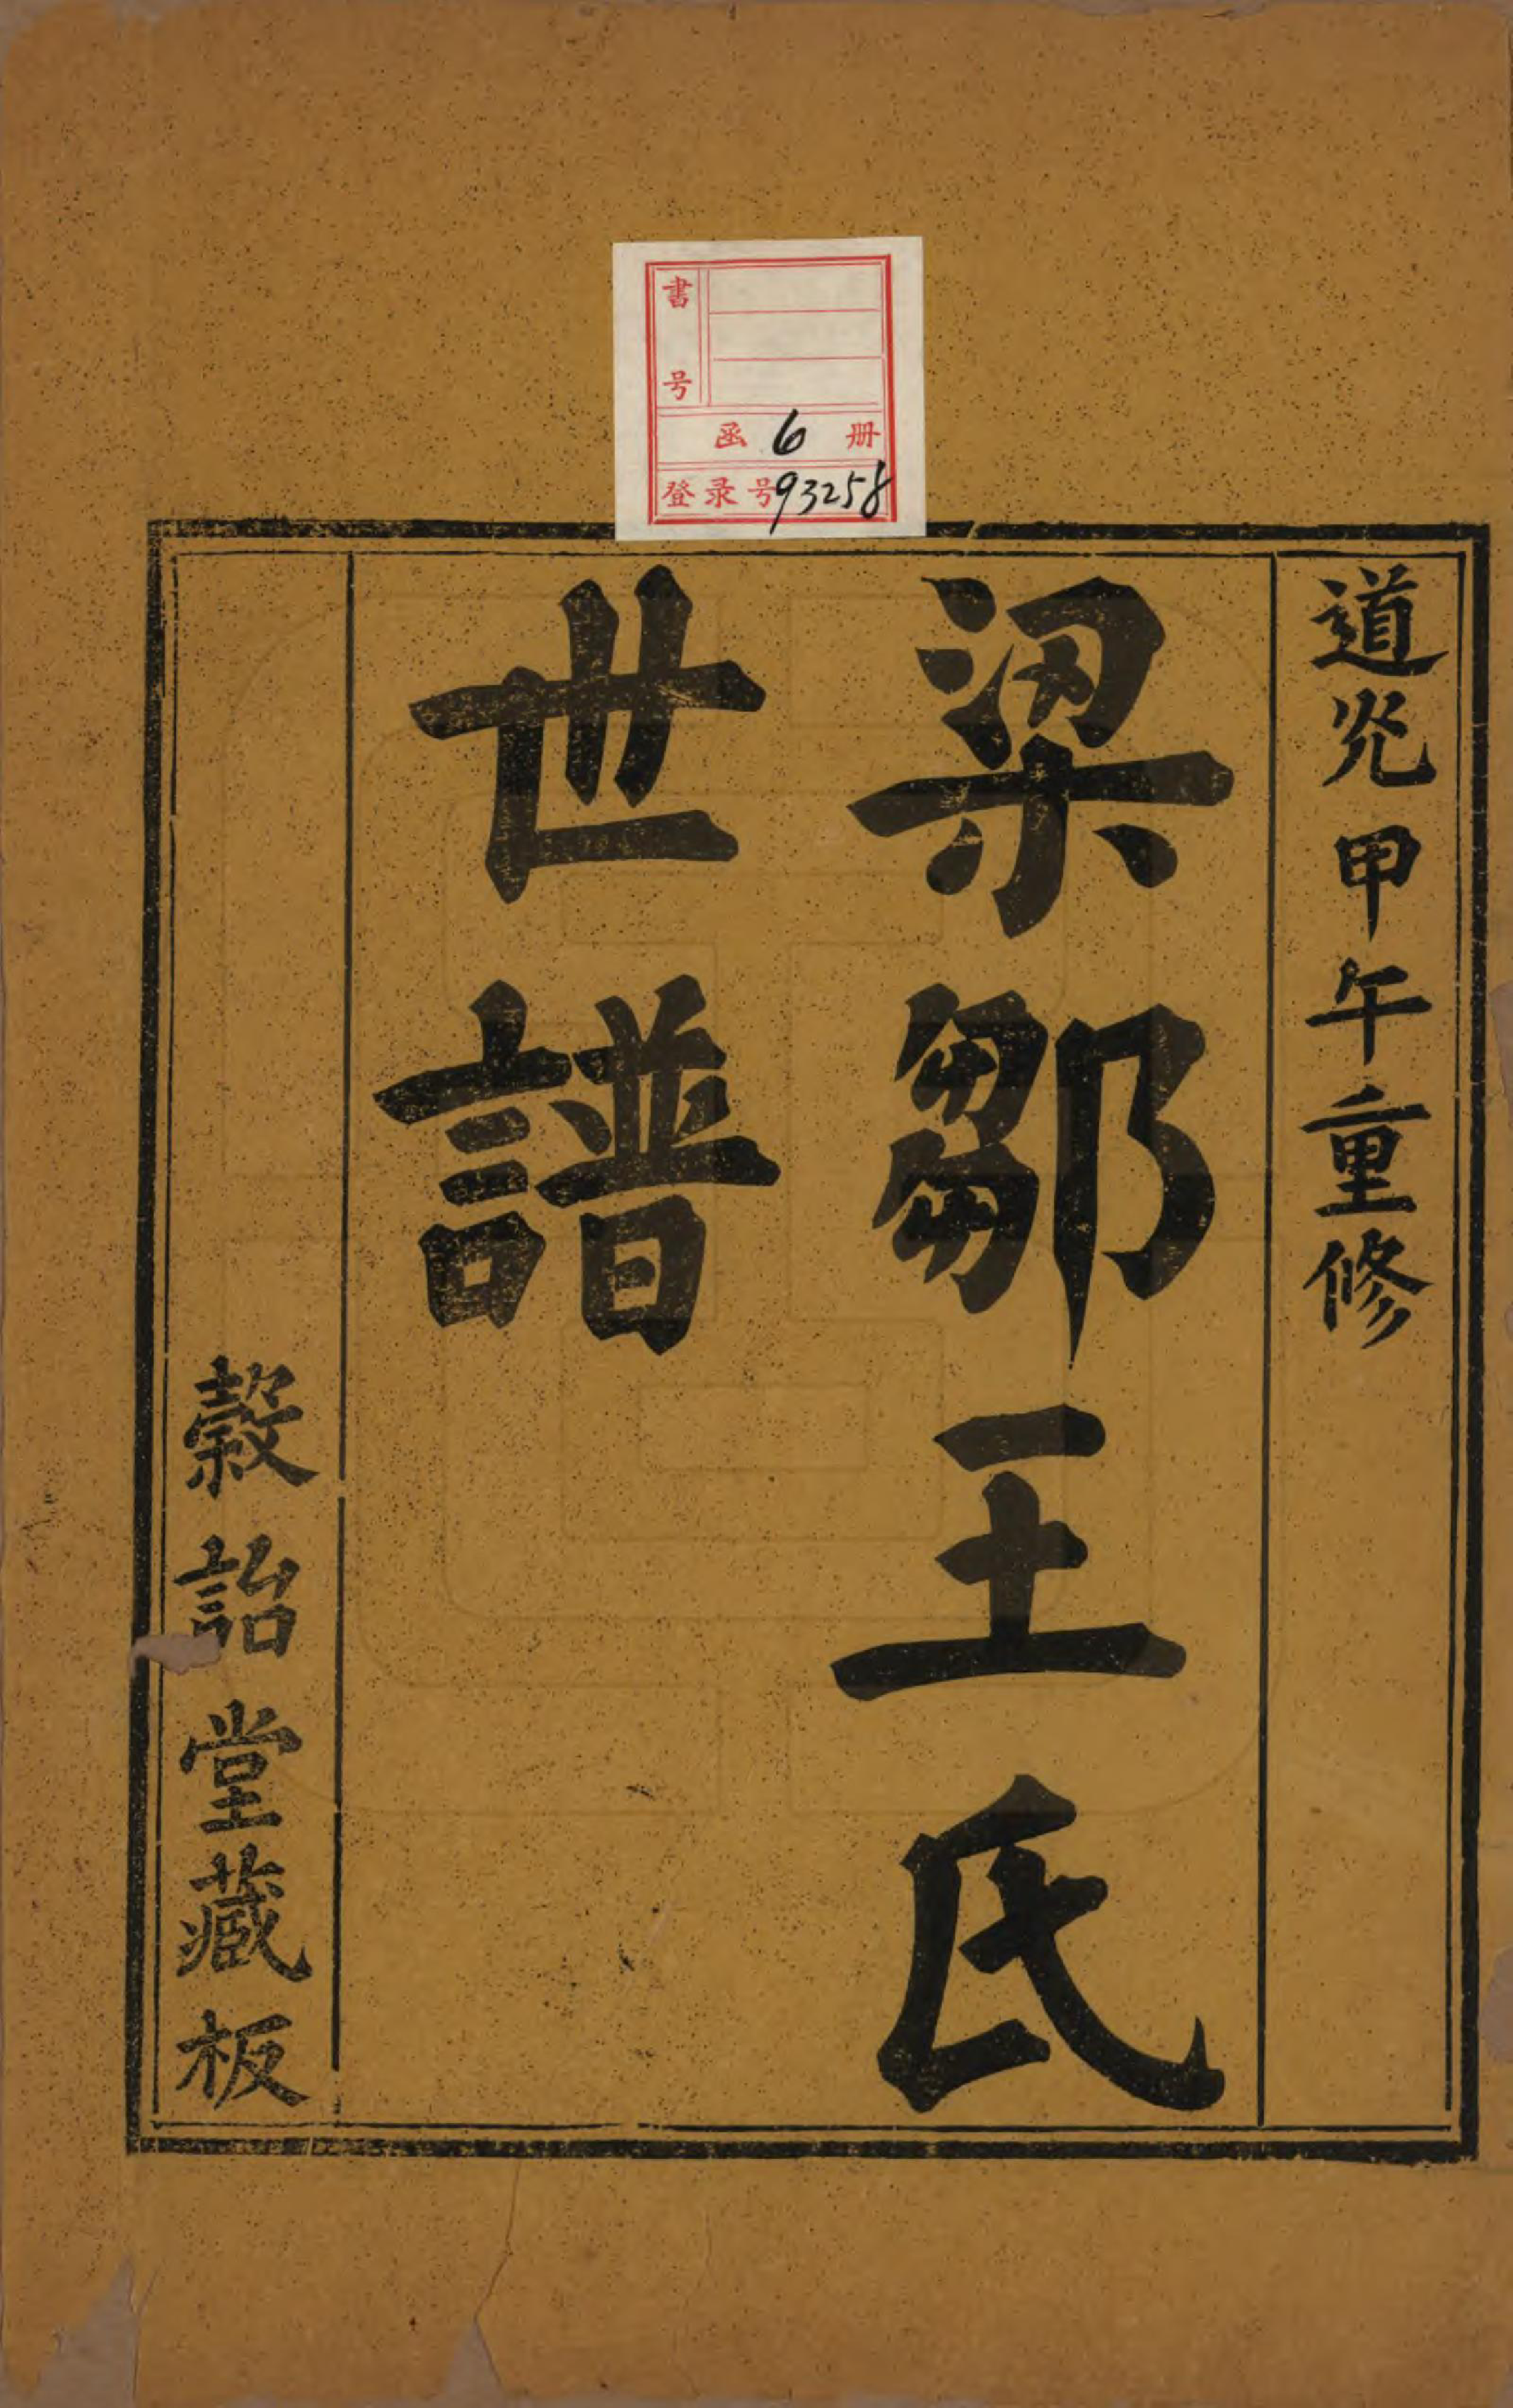 道光甲午重修
梁鄒王氏
世譜
穀詒堂藏板
書号
函 6 册
登录号93258